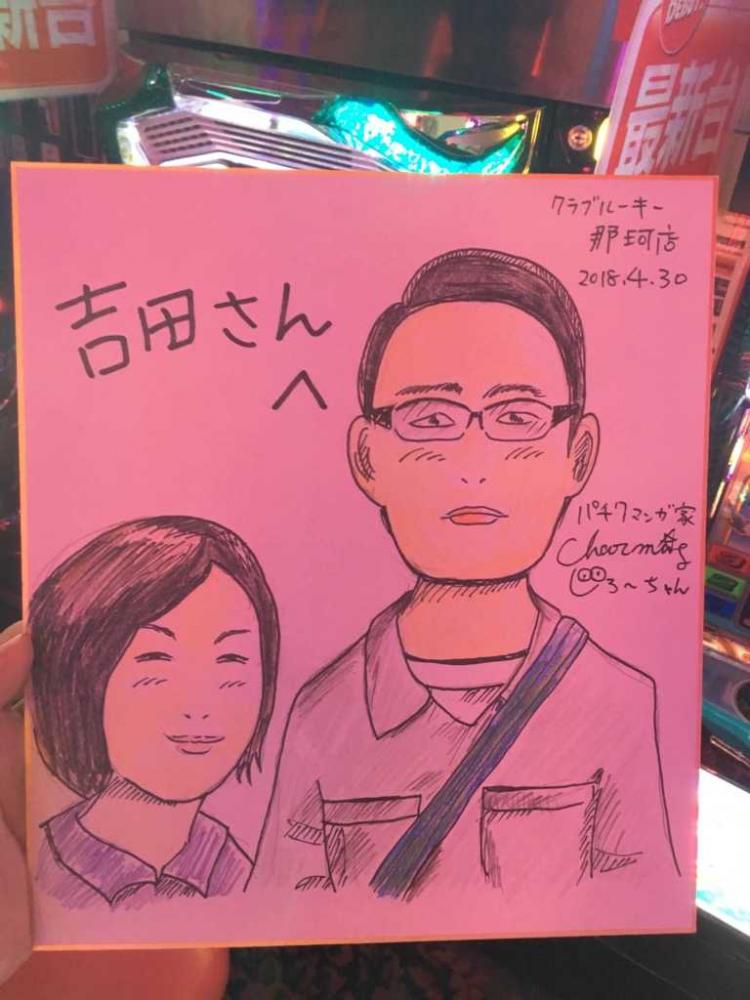 新台
最新台
クラブルーキー
那珂店
2018.4.30
吉田さん
へ
パチ7マンガ家
Charming
じろ〜ちゃん